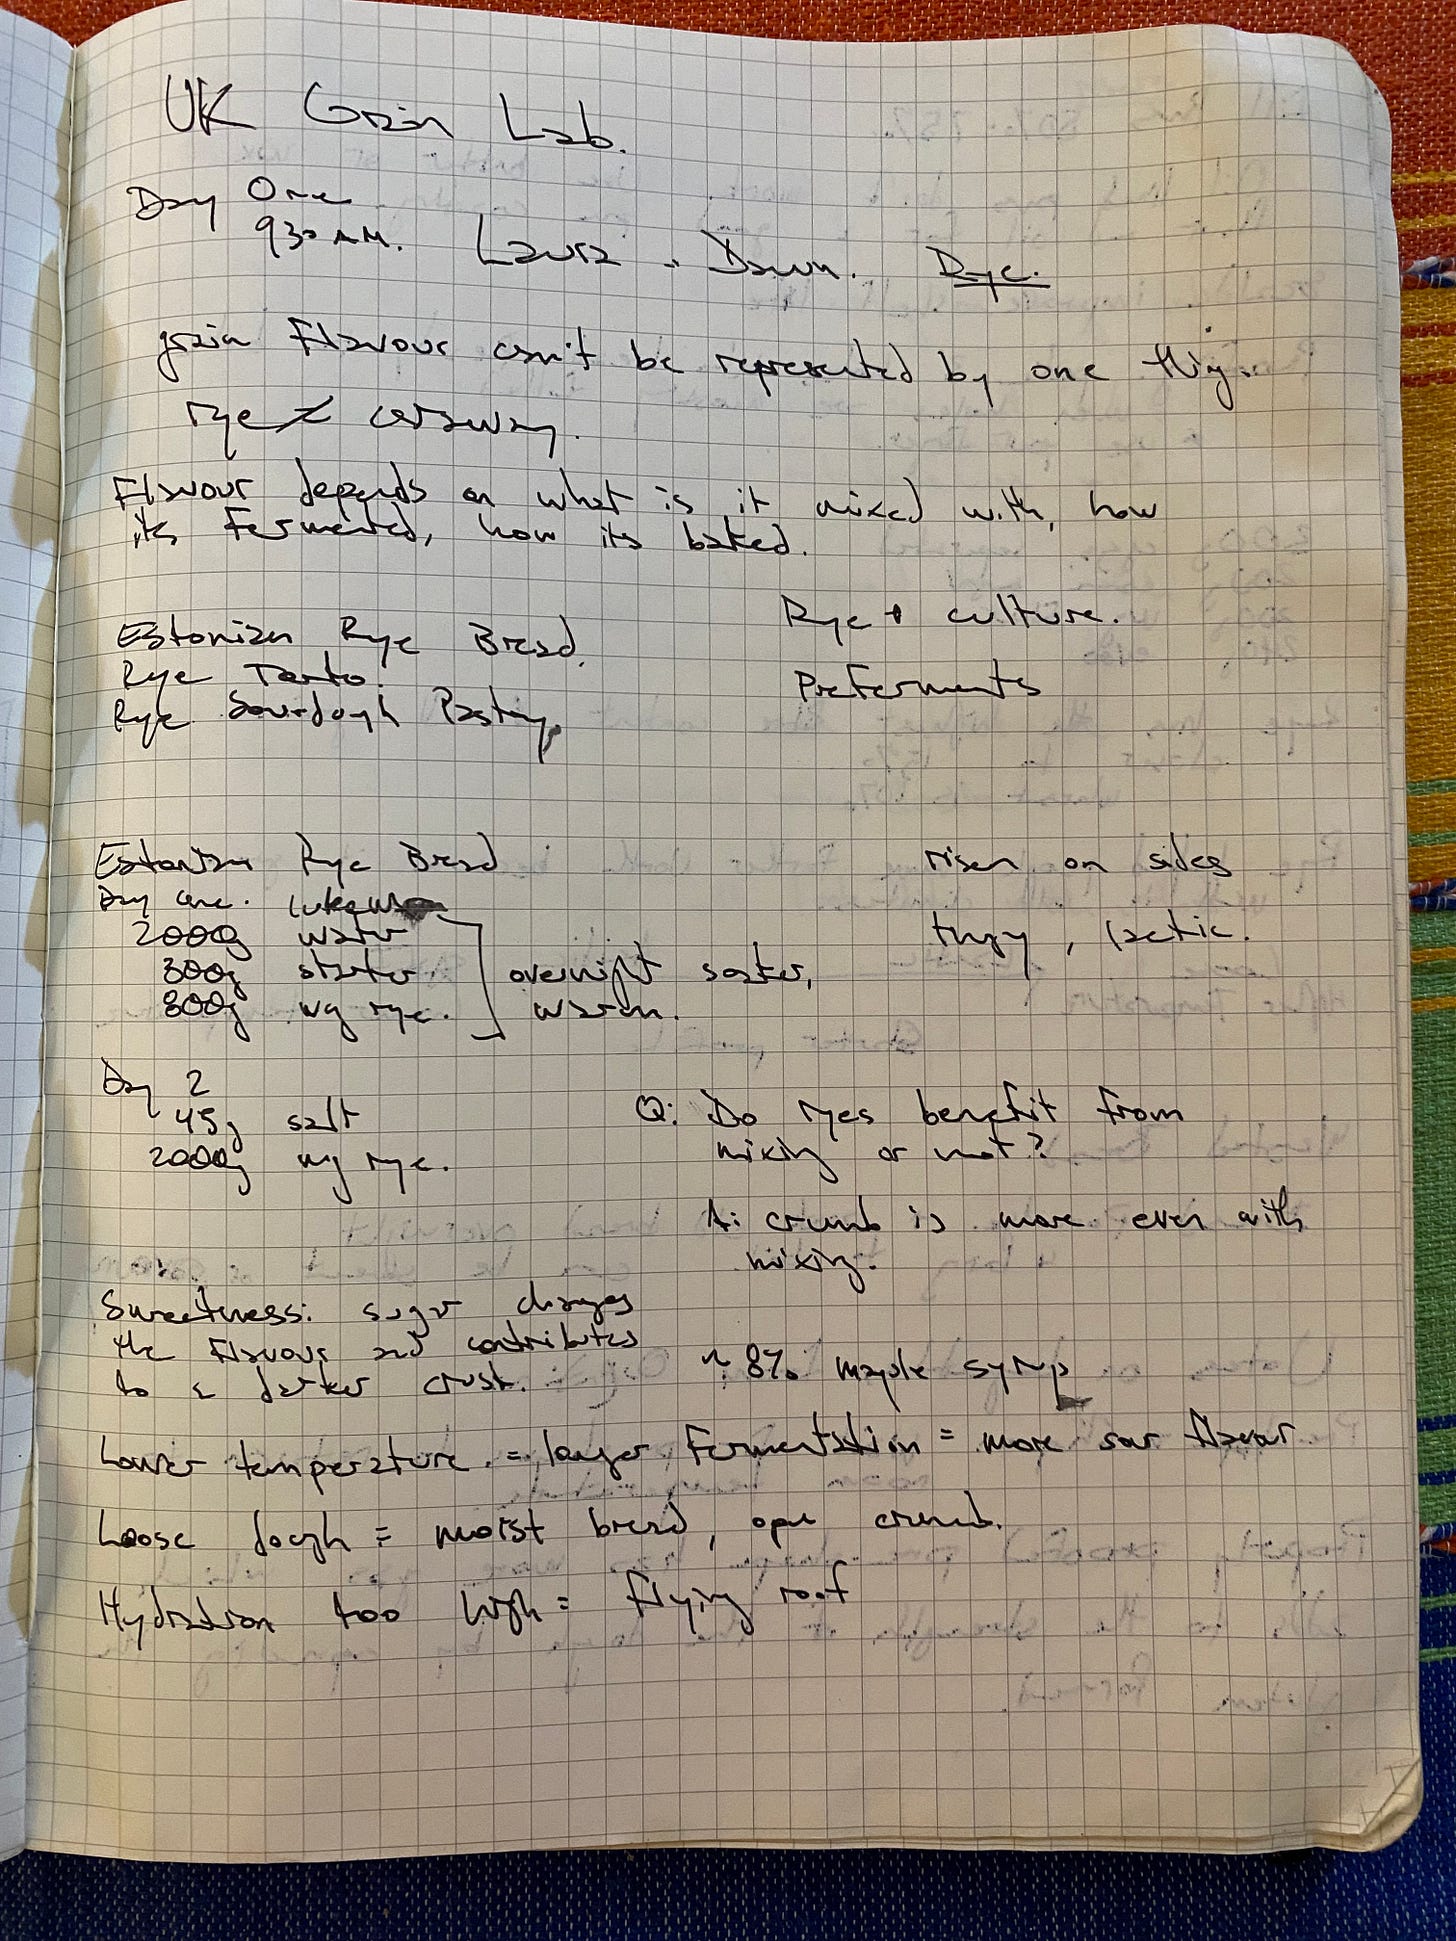 UK Grain Lab.
Day One
930 AM. Laura + Dawn. Rye.
grain Flavour can't be represented by one thing.
rye ≠ caraway.
Flavour depends on what is it mixed with, how
its fermented, how its baked.
Rye + culture.
Estonian Rye Bread.
Rye
Preferments
Rye Sourdough Pastry
Estonian Rye Bread
risen on sides
Day one. lukewarm
2000g water
tangy, lactic.
300g starter overnight soaker,
800g wg rye. warm.
Day 2
45g salt
Q: Do ryes benefit from
2000g wg rye.
mixing or not?
A: crumb is more even with
mixing.
Sweetness: sugar changes
the flavour and contributes
to a darker crust.
~ 8% maple syrup
Lower temperature. = longer fermentation = more sour flavour
Loose dough = moist bread, open crumb.
Hydration too high = flying roof